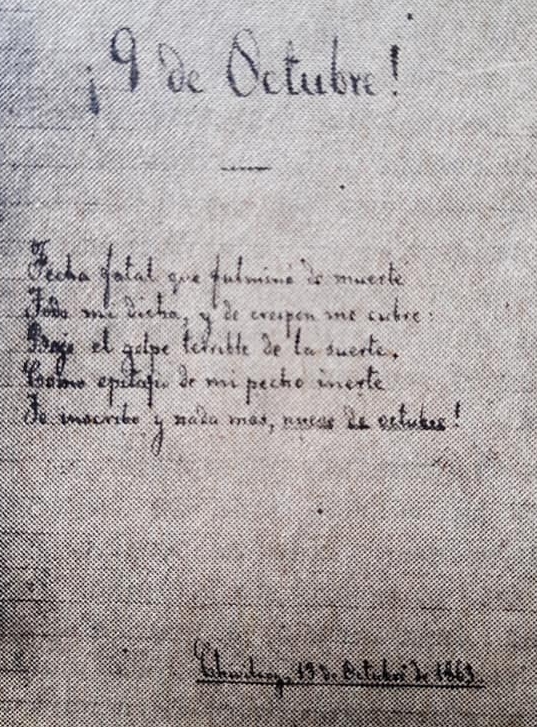 ¡9 de Octubre!
Fecha fatal que fulminó de muerte
Toda mi dicha, y de crespon me cubre:
Bajo el golpe terrible de la suerte,
Como epitafio de mi pecho inerte
Te inscribo y nada mas, nueve de octubre!
13 de Octubre de 1863.